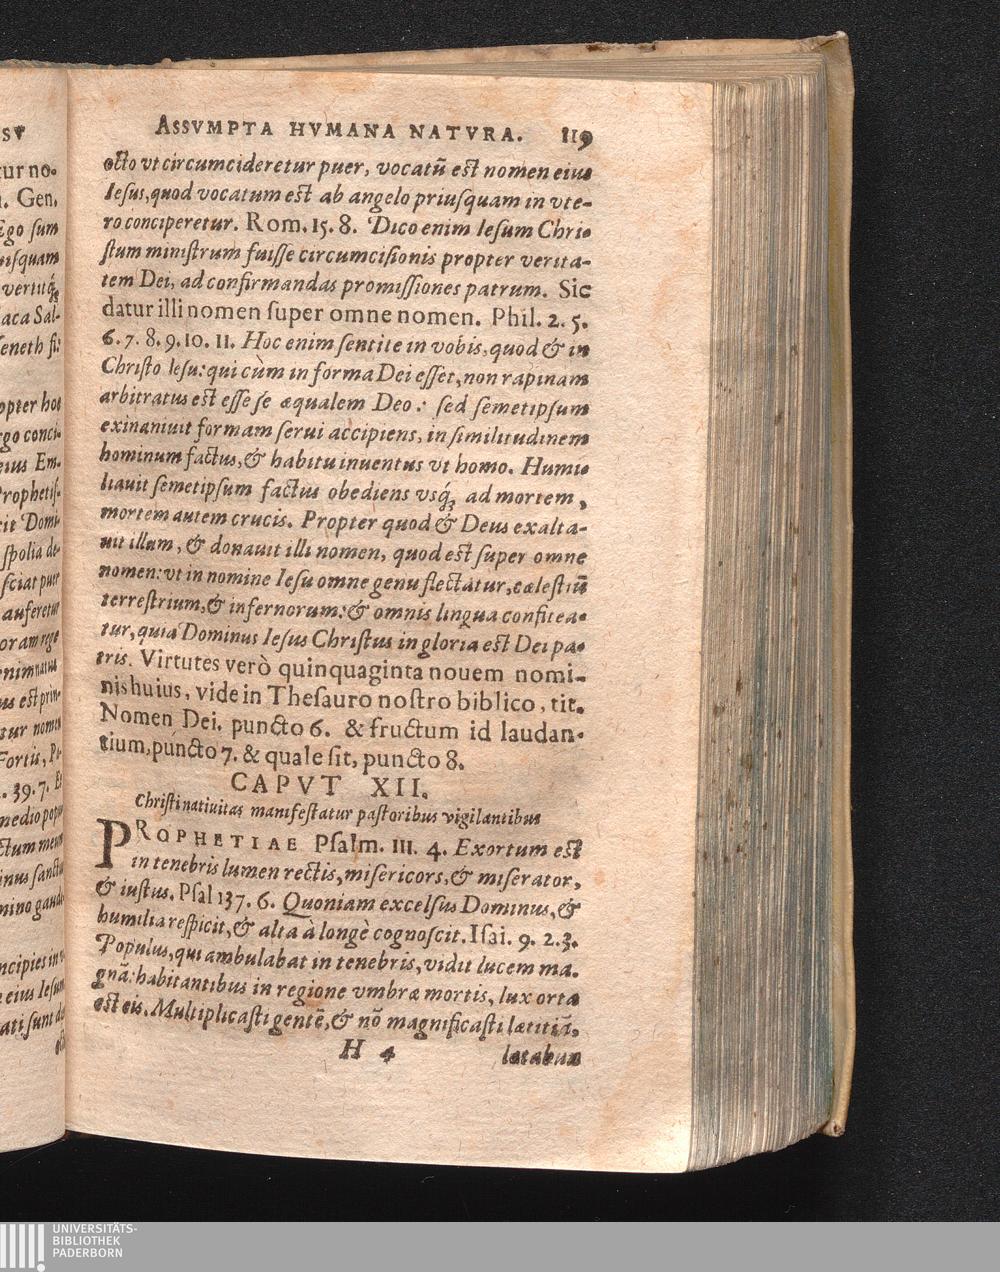 ASSVMPTA HVMANA NATVRA. 119
octo vt circumcideretur puer, vocatũ est nomen eius
Iesus, quod vocatum est ab angelo priusquam in vte-
ro conciperetur. Rom. 15. 8. Dico enim Iesum Chri-
stum ministrum fuisse circumcisionis propter verita-
tem Dei, ad confirmandas promissiones patrum. Sic
datur illi nomen super omne nomen. Phil. 2. 5.
6. 7. 8. 9. 10. 11. Hoc enim sentite in vobis, quod & in
Christo Iesu: qui cùm in forma Dei esset, non rapinam
arbitratus est esse se æqualem Deo: sed semetipsum
exinaniuit formam serui accipiens, in similitudinem
hominum factus, & habitu inuentus vt homo. Humi-
liauit semetipsum factus obediens vsq́; ad mortem,
mortem autem crucis. Propter quod & Deus exalta-
uit illum, & donauit illi nomen, quod est super omne
nomen: vt in nomine Iesu omne genu flectatur, cælestiũ
terrestrium, & infernorum: & omnis lingua confitea-
tur, quia Dominus Iesus Christus in gloria est Dei pa-
tris. Virtutes verò quinquaginta nouem nomi-
nis huius, vide in Thesauro nostro biblico, tit.
Nomen Dei. puncto 6. & fructum id laudan-
tium, puncto 7. & quale sit, puncto 8.
CAPVT XII.
Christi natiuitas manifestatur pastoribus vigilantibus
PROPHETIAE Psalm. 111. 4. Exortum est
in tenebris lumen rectis, misericors, & miserator,
& iustus. Psal 137. 6. Quoniam excelsus Dominus, &
humilia respicit, & alta à longè cognoscit. Isai. 9. 2.3.
Populus, qui ambulabat in tenebris, vidit lucem ma-
gnã: habitantibus in regione vmbræ mortis, lux orta
est eis. Multiplicasti gentẽ, & nõ magnificasti lætitiã,
H 4 lætabun
UNIVERSITÄTS-
BIBLIOTHEK
PADERBORN